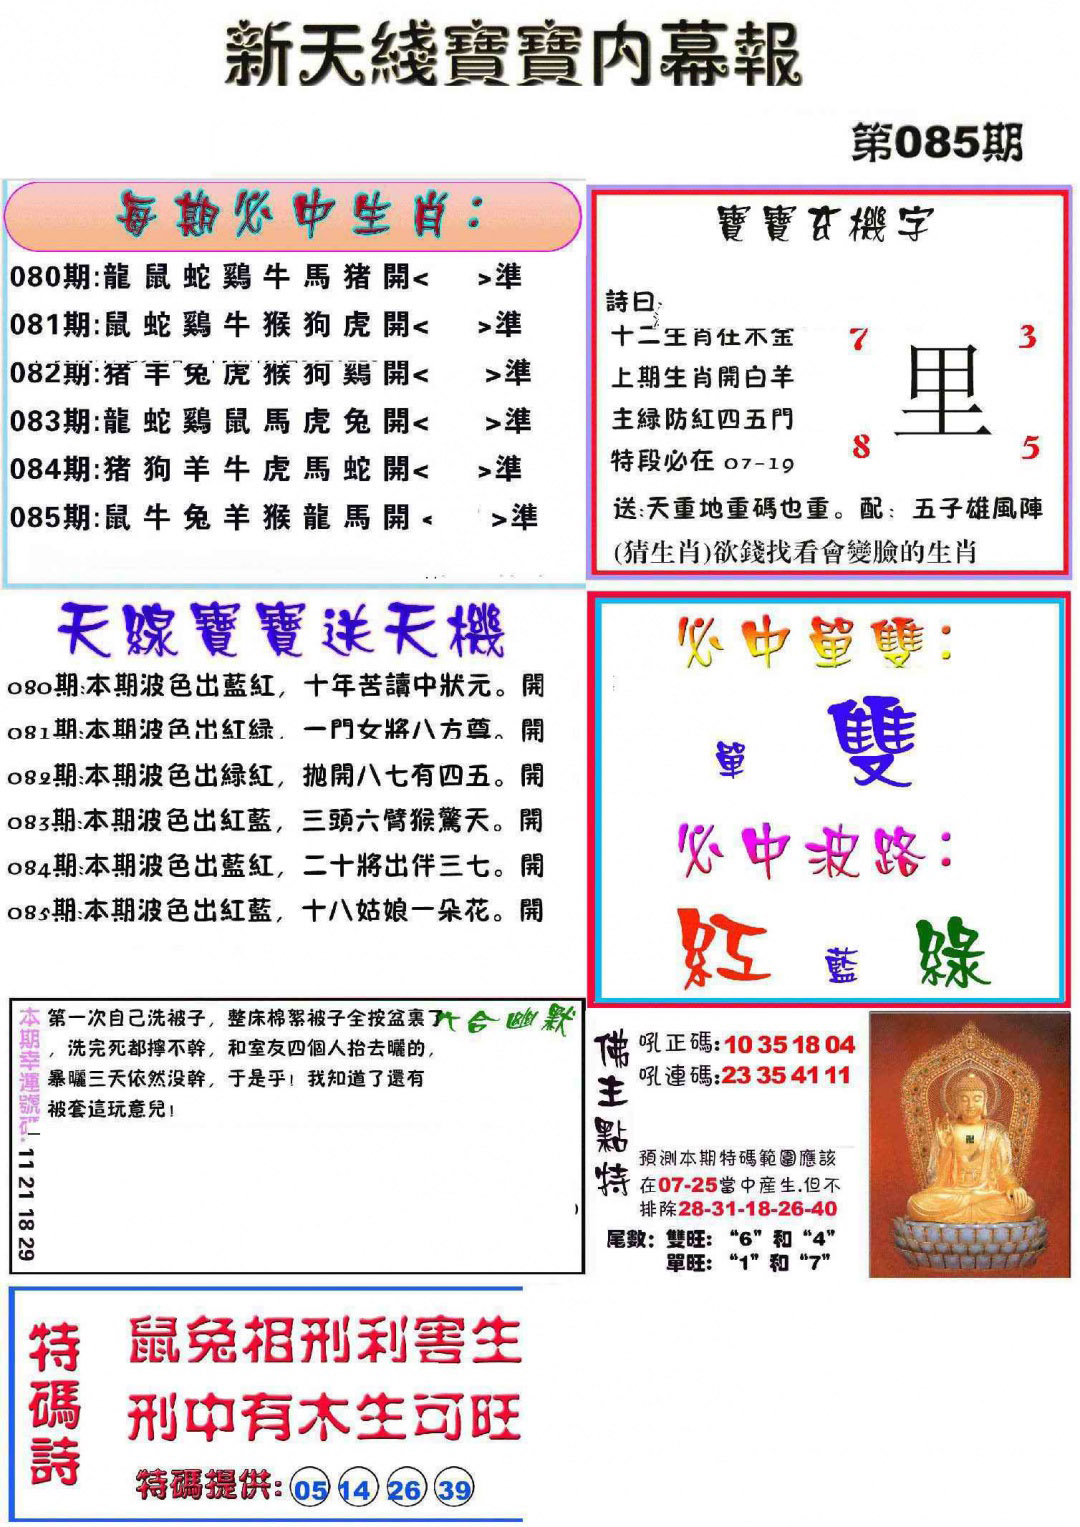 新天綫寶寶内幕報
第085期
每期必中生肖：
080期:龍鼠蛇鷄牛馬猪開< >準
081期:鼠蛇鷄牛猴狗虎開< >準
082期:猪羊兔虎猴狗鷄開< >準
083期:龍蛇鷄鼠馬虎兔開< >準
084期:猪狗羊牛虎馬蛇開< >準
085期:鼠牛兔羊猴龍馬開< >準
寶寶玄機字
詩曰:
十二生肖在木金
上期生肖開白羊
主緑防紅四五門
特段必在 07-19
7 3
里
8 5
送:天重地重碼也重。配：五子雄風陣
(猜生肖)欲錢找看會變臉的生肖
天線寶寶送天機
080期:本期波色出藍紅，十年苦讀中狀元。開
081期:本期波色出紅緑，一門女將八方尊。開
082期:本期波色出緑紅，抛開八七有四五。開
083期:本期波色出紅藍，三頭六臂猴驚天。開
084期:本期波色出藍紅，二十將出伴三七。開
085期:本期波色出紅藍，十八姑娘一朵花。開
必中單雙：
單 雙
必中波路：
紅 藍 綠
本期幸運號碼:
11 21 18 29
六合幽默
第一次自己洗被子，整床棉絮被子全按盆裏了
，洗完死都擰不幹，和室友四個人抬去曬的，
暴曬三天依然没幹，于是乎！我知道了還有
被套這玩意兒！
佛主點特
吼正碼:10 35 18 04
吼連碼:23 35 41 11
預測本期特碼範圍應該
在07-25當中産生.但不
排除28-31-18-26-40
尾數：雙旺：“6”和“4”
單旺：“1”和“7”
卍
特碼詩
鼠兔相刑利害生
刑中有木生可旺
特碼提供: 05 14 26 39